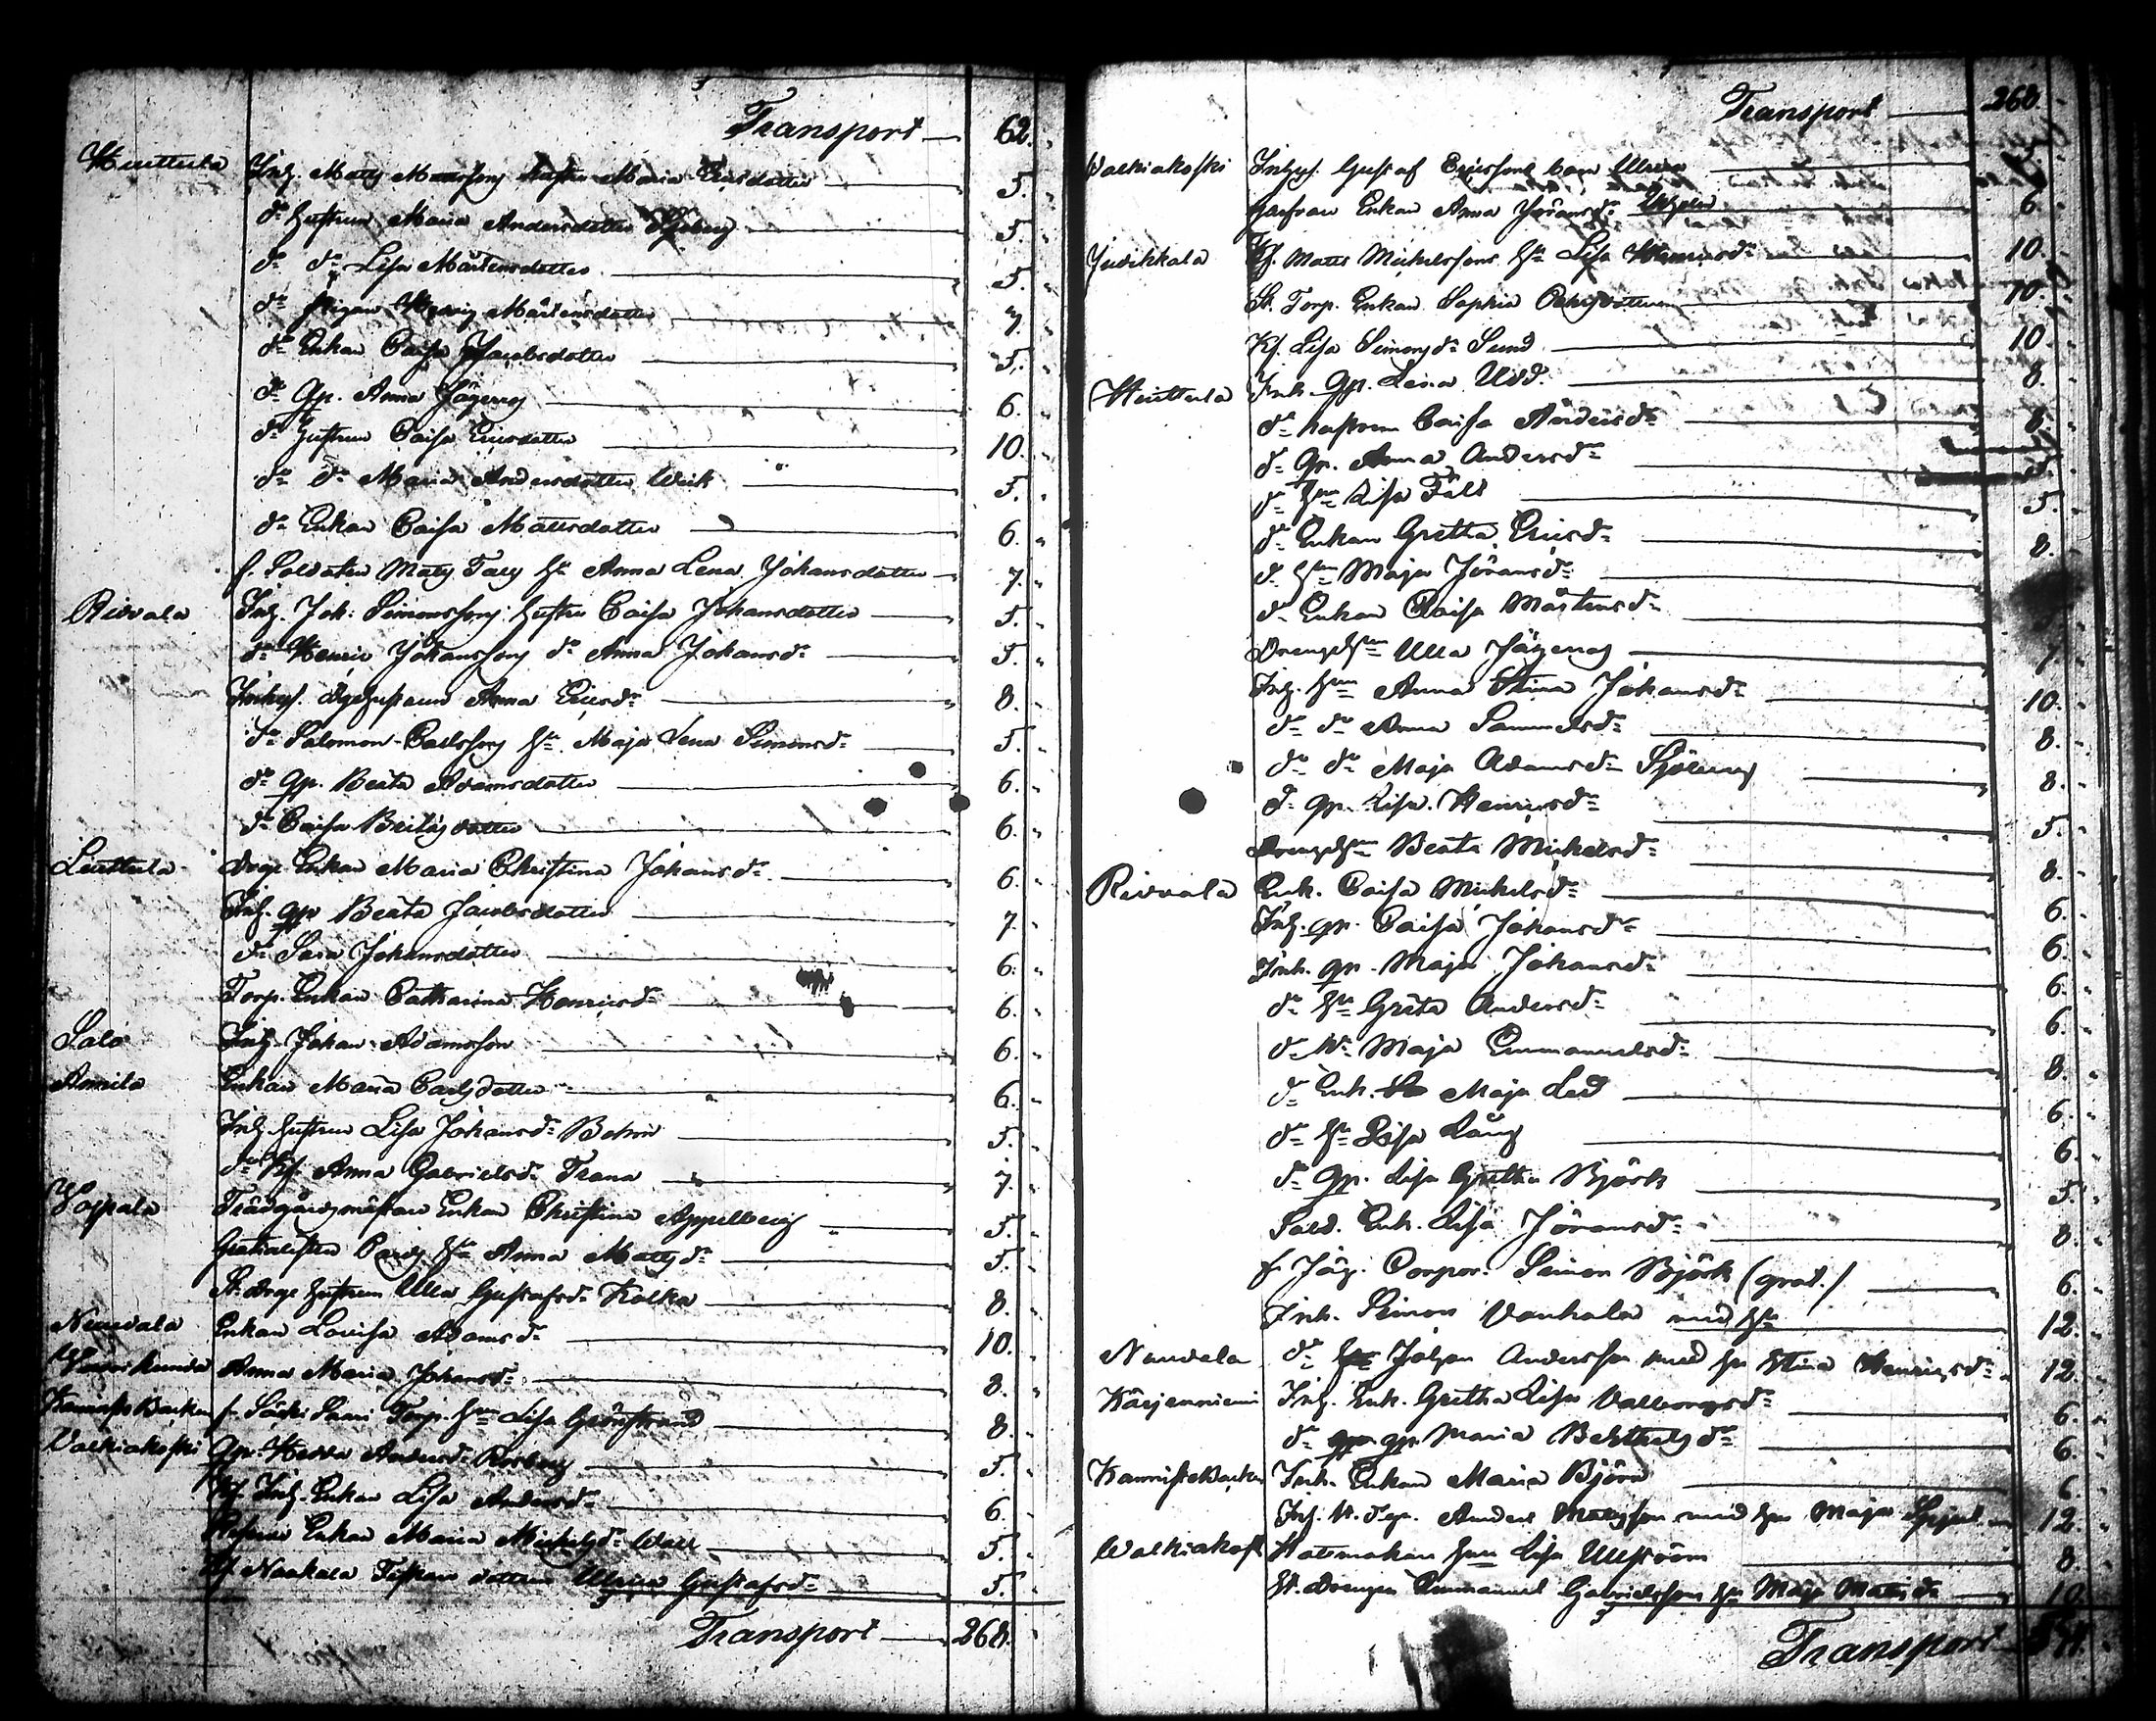 Transport 62.
Huittula Inh. Matts Mattssons hustru Maria Ericsdotter 5.
do hustrun Maria Andersdotter Sjöberg 5.
do do Lisa Mårtensdotter 5.
do pigan Hedvig Mårtensdotter 7.
do Enkan Caisa Jacobsdotter 5.
do Qp. Anna Jägerus 6.
do hustrun Caisa Ericsdotter 10.
do do Maria Andersdotter Wick 5.
do Enkan Caisa Mattsdotter 6.
f. Soldaten Matts Fars hu Anna Lena Johansdotter 7.
Ridvala Inh. Joh: Simonssons hustru Caisa Johansdotter 5.
do Henric Johanssons do Anna Johansdr 5.
Inhys. Anna Ericsdr 8.
do Salomon Carlssons hu Maja Lena Simonsdr 5.
do qp. Beata Adamsdotter 6.
do Caisa Bertilsdotter 6.
Liuttula Drgs Enkan Maria Christina Johansdr 6.
Inh. qp Beata Jacobsdotter 7.
do Sara Johansdotter 6.
Torp. Enkan Catharina Henricsdr 6.
Salo Inh. Johan Adamsson 6.
Annila Enkan Maria Carlsdotter 6.
Inh. hustrun Lisa Johansdr Bohm 5.
do Kf. Anna Gabrielsdr Trana 7.
Voipala Trädgårdsmästare Enkan Christina Appelberg 5.
Gratialisten hu Anna Mattsdr 5.
St. drgs hustrun Ulla Gustafsdr Kolka 8.
Nuudala Enkan Lovisa Adamsdr 10.
Anna Maria Johansdr 8.
Kannisto Backen f. Torp. hun Lisa Grönstrand 8.
Valkiakoski qp. Hedda Andersdr Rosberg 5.
Kf. Inh. Enkan Lisa Andersdr 6.
Enkan Maria Michelsdr Wall 5.
Kf. Naakala dotter Ulrica Gustafsdr 5.
Transport 268.
Transport 268.
Valkiakoski Inhys. Gustaf Ericssons barn Ulrica
Enkan Anna Göransdr 6.
Jutikkala Kf. Matts Michelssons hu Lisa Henricsdr 10.
St. Torp. Enkan Sophia 10.
Kf. Lisa Simonsdr Sund 10.
Huittula Inh. Qp. Lena Udd. 8.
do hustrun Caisa Andersdr 8.
do Qp. Anna Andersdr 5.
do hun Lisa Fält 5.
do Enkan Gretha Ericsdr 8.
do hun Maja Göransdr
do Enkan Caisa Mårtensdr
Drengshun Ulla Jägerus 7.
Inh. hun Anna Stina Johansdr 10.
do do Anna Samuelsdr 8.
do do Maja Adamsdr Sjöberg 8.
do qp. Lisa Henricsdr 5.
Drengshun Beata Michelsdr 8.
Ridvala Enk. Caisa Michelsdr 6.
Inh. qp. Caisa Johansdr 6.
Inh. qp. Maja Johansdr 6.
do hu Greta Andersdr 6.
do hu Maja Emmanuelsdr 8.
do Enk. Maja Led 6.
do hu Lisa Lång 6.
do Qp. Lisa Gretha Björk 5.
Sold. Enk. Lisa Göransdr 8.
f. Jäg. Corpor. Simon Björk (grat.) 6.
Inh. Simon Vanhala med hu 12.
Nuudala do Johan Andersson med hu Stina Henricsdr 12.
Kärjenniemi Inh. Enk. Gretha Lisa Valborgsdr 6.
do qp Maria Berthelsdr 6.
Kannisto Backen Inh. Enkan Maria Björn 6.
Anders Mattsson med hu Maja 12.
Walkiakoski Hattmakare hun Lisa Ullström 8.
St. drengen Emmanuel Gabrielssons hu Maja Mattsdr 10.
Transport